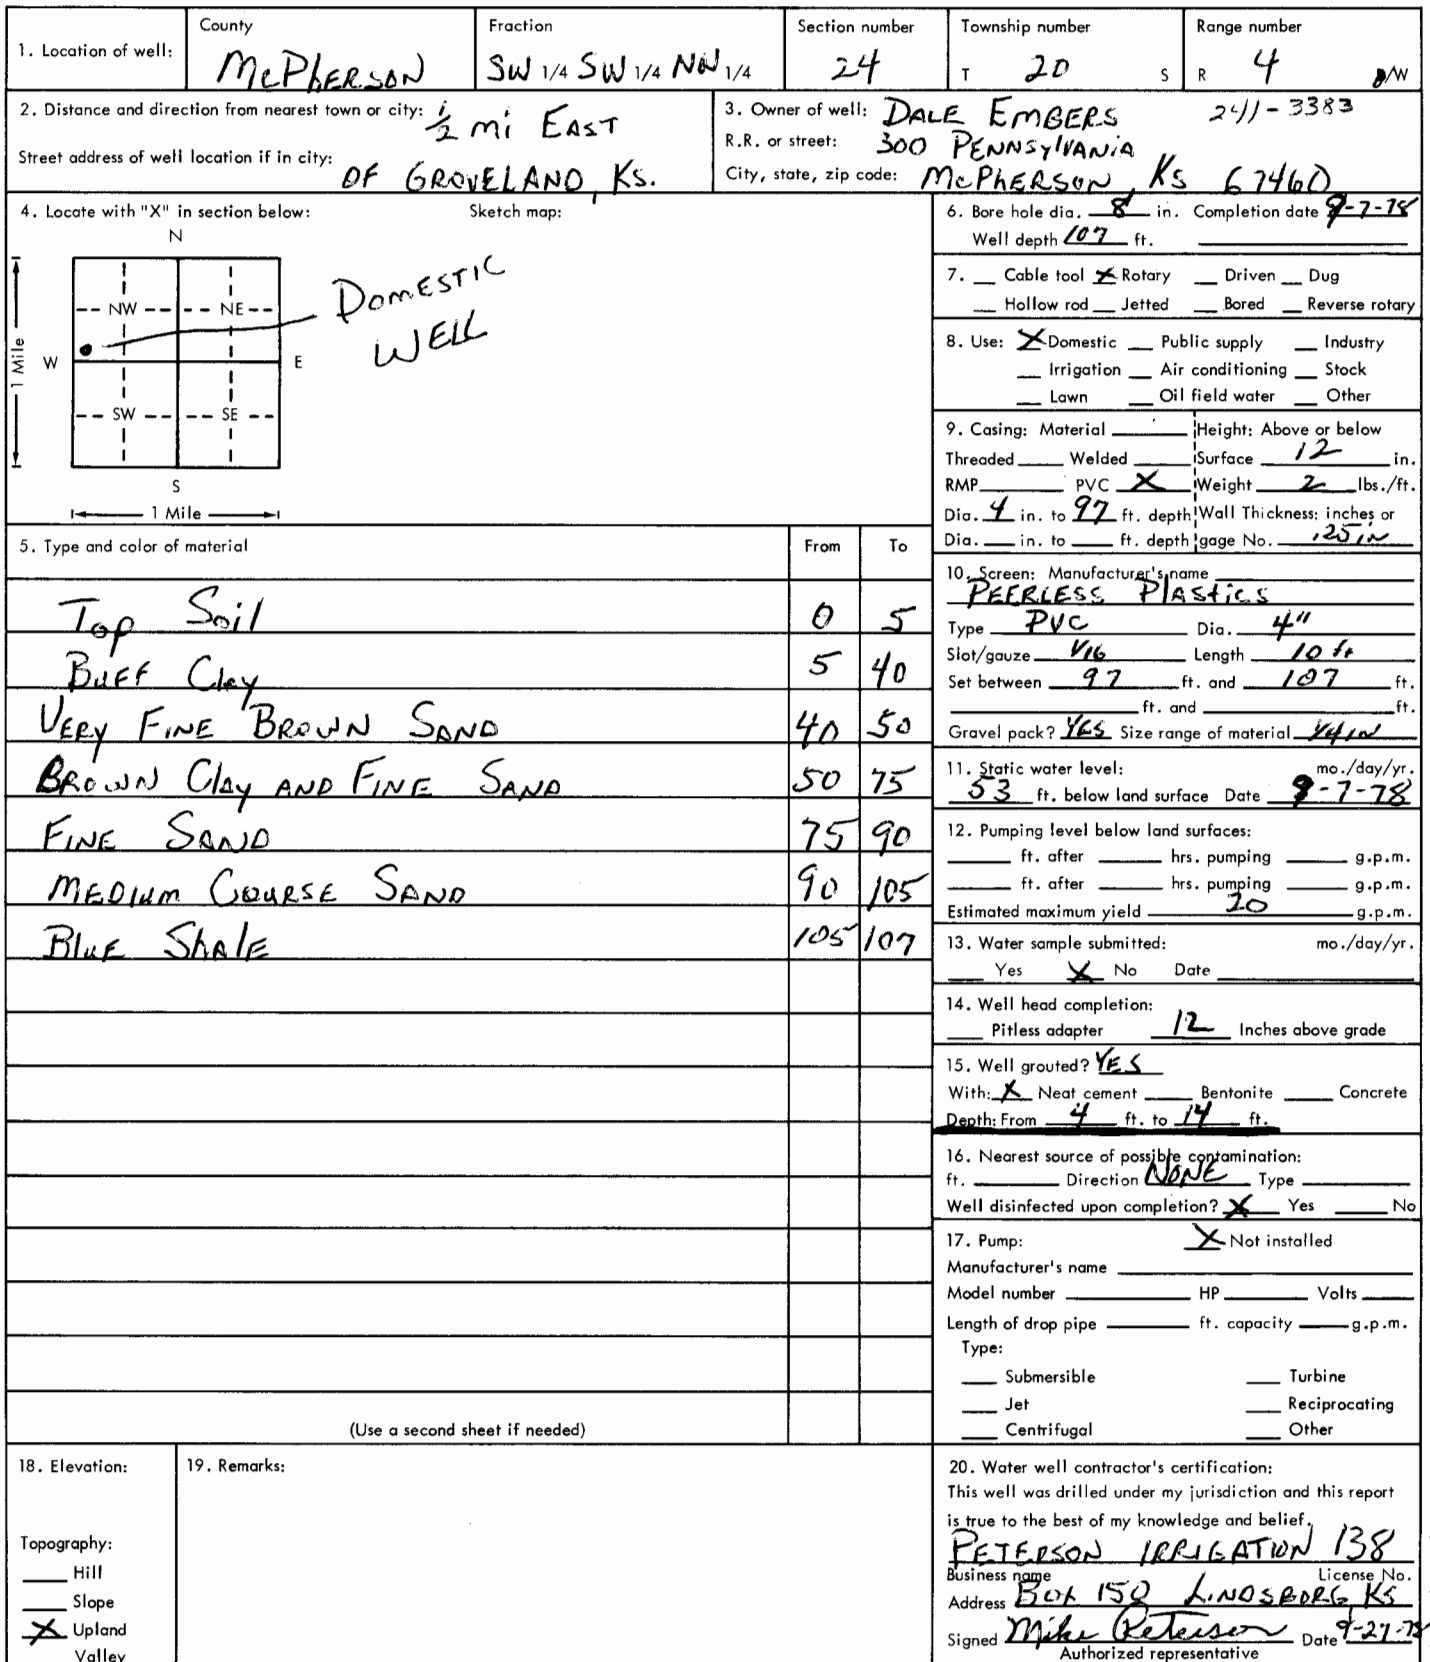 1. Location of well: County McPherson Fraction SW 1/4 SW 1/4 NW 1/4 Section number 24 Township number T 20 S Range number R 4 E/W
2. Distance and direction from nearest town or city: 1/2 mi East
Street address of well location if in city: OF GROVELAND, Ks.
3. Owner of well: DALE EMBERS 241-3383
R.R. or street: 300 PENNSylVANiA
City, state, zip code: McPHERSON, Ks 67460
4. Locate with "X" in section below: Sketch map:
N
NW NE
W E
SW SE
S
1 Mile
1 Mile
DOMESTIC
WELL
5. Type and color of material From To
Top Soil 0 5
BUFF Clay 5 40
VERY FINE BROWN SAND 40 50
BROWN Clay AND FINE SAND 50 75
FINE SAND 75 90
MEDIUM COURSE SAND 90 105
BluE ShAlE 105 107
(Use a second sheet if needed)
6. Bore hole dia. 8 in. Completion date 9-7-78
Well depth 107 ft.
7. Cable tool X Rotary Driven Dug
Hollow rod Jetted Bored Reverse rotary
8. Use: X Domestic Public supply Industry
Irrigation Air conditioning Stock
Lawn Oil field water Other
9. Casing: Material Height: Above or below
Threaded Welded Surface 12 in.
RMP PVC X Weight 2 lbs./ft.
Dia. 4 in. to 97 ft. depth Wall Thickness: inches or
Dia. in. to ft. depth gage No. .125 in
10. Screen: Manufacturer's name
PEERLESS PlAStics
Type PVC Dia. 4"
Slot/gauze 1/16 Length 10 ft
Set between 97 ft. and 107 ft.
ft. and ft.
Gravel pack? YES Size range of material 1/4 IN
11. Static water level: mo./day/yr.
53 ft. below land surface Date 9-7-78
12. Pumping level below land surfaces:
ft. after hrs. pumping g.p.m.
ft. after hrs. pumping g.p.m.
Estimated maximum yield 20 g.p.m.
13. Water sample submitted: mo./day/yr.
Yes X No Date
14. Well head completion:
Pitless adapter 12 Inches above grade
15. Well grouted? YES
With: X Neat cement Bentonite Concrete
Depth: From 4 ft. to 14 ft.
16. Nearest source of possible contamination:
ft. Direction NONE Type
Well disinfected upon completion? X Yes No
17. Pump: X Not installed
Manufacturer's name
Model number HP Volts
Length of drop pipe ft. capacity g.p.m.
Type:
Submersible Turbine
Jet Reciprocating
Centrifugal Other
18. Elevation:
Topography:
Hill
Slope
X Upland
Valley
19. Remarks:
20. Water well contractor's certification:
This well was drilled under my jurisdiction and this report
is true to the best of my knowledge and belief.
PETERSON IRRIGATION 138
Business name License No.
Address Box 150 LINDSBORG, Ks
Signed Mike Peterson Date 9-27-78
Authorized representative